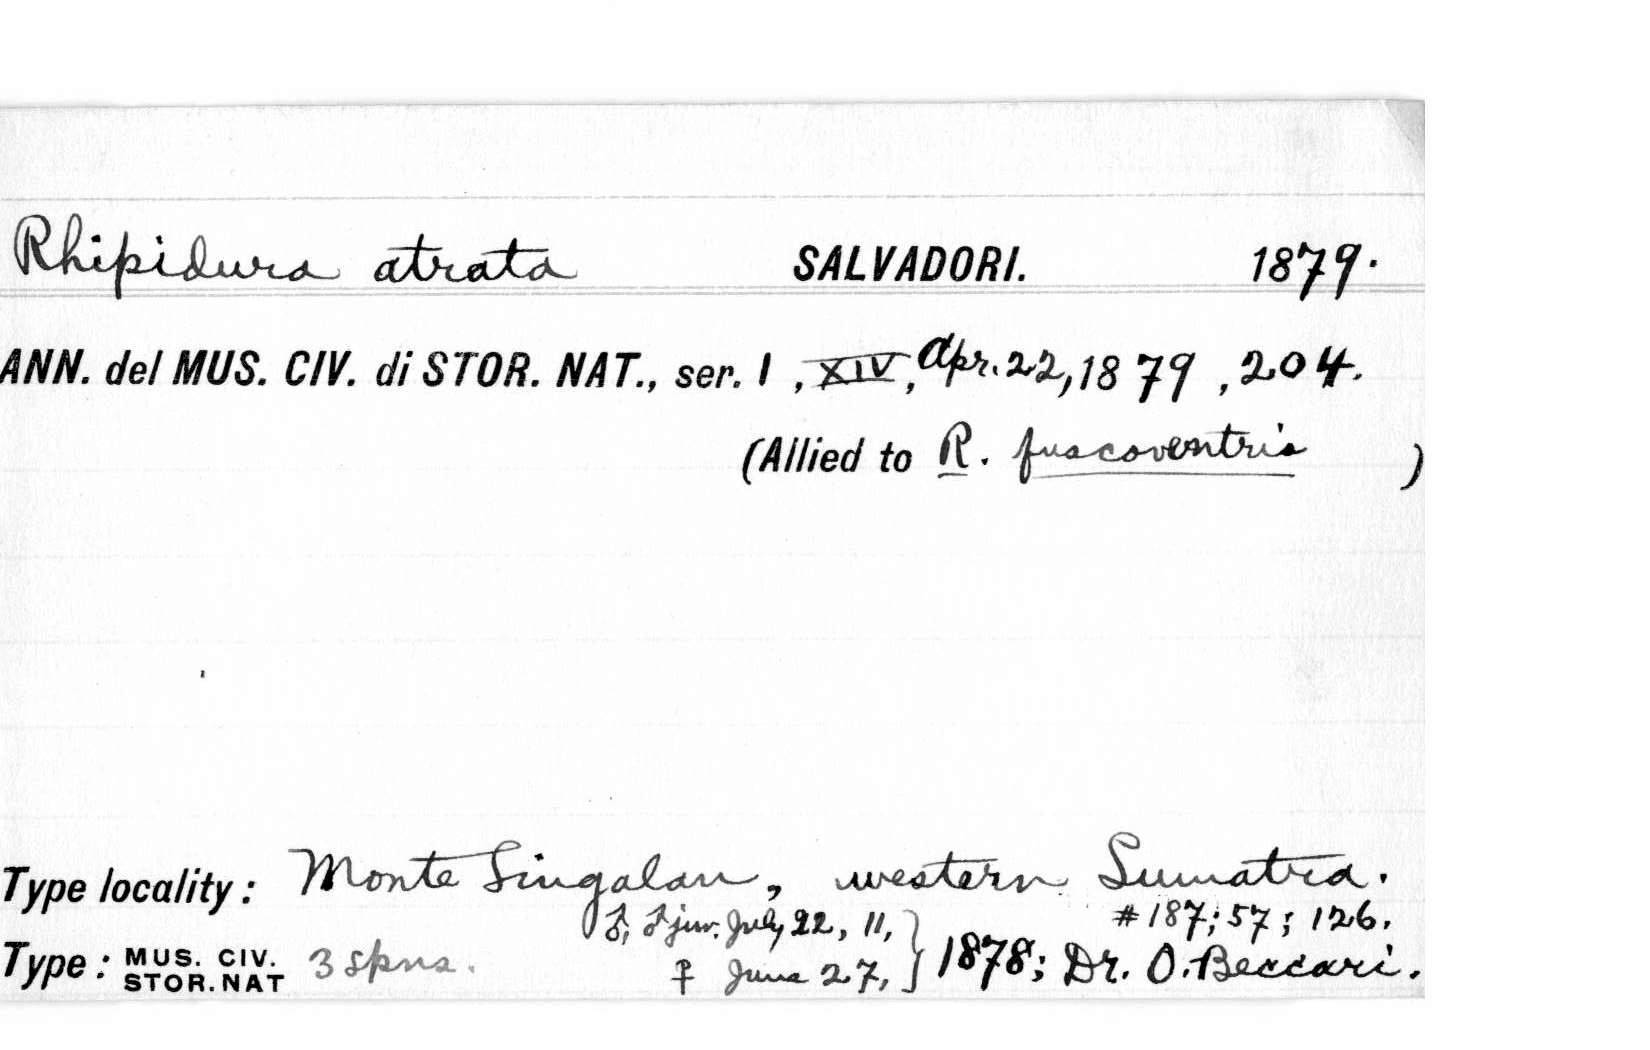 Rhipidura atrata SALVADORI. 1879.
ANN. del MUS. CIV. di STOR. NAT., ser. 1, XIV, Apr. 22, 1879, 204.
(Allied to R. fuscoventris )
Type locality: Monte Singalan, western Sumatra.
♂, ♂ juv. July 22, 11, #187; 57; 126.
Type: MUS. CIV. STOR. NAT 3 spns. ♀ June 27, } 1878; Dr. O. Beccari.